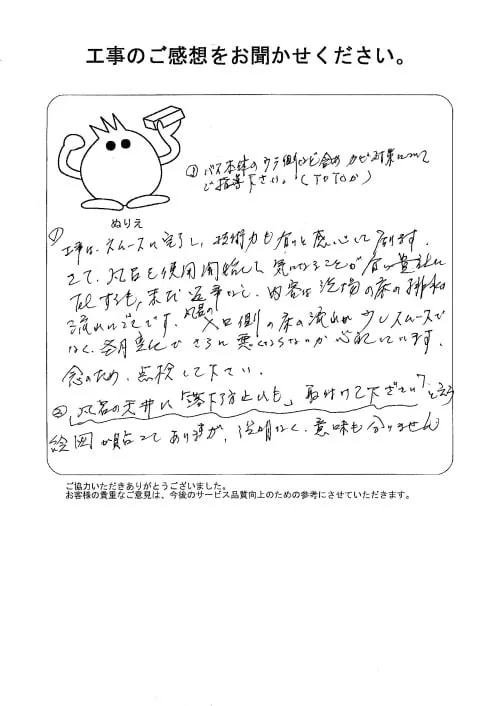 工事のご感想をお聞かせください。
③ バス本体のウラ側など含め カビ対策について
ご指導下さい。(TOTOが)
ぬりえ
① 工事は、スムースに完了し、技術力も有りと感心して居ります。
さて、風呂を使用開始して 気になることが有り貴社に
Telするも、未だ返事なし、内容は洗場の床の排水の
流れについてです。風呂の入口側の床の流れが少しスムースで
なく、毎月更にひどく悪くならないか心配しています。
念のため、点検して下さい。
② 「風呂の天井に「落下防止ひも」取付けて下ださい?」と云う
絵図が貼ってありますが、説明なく、意味も分りません
ご協力いただきありがとうございました。
お客様の貴重なご意見は、今後のサービス品質向上のための参考にさせていただきます。